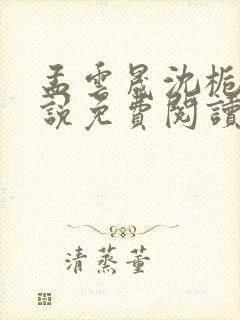 孟雲晟沈梔
說免費閱讀
清蒸董